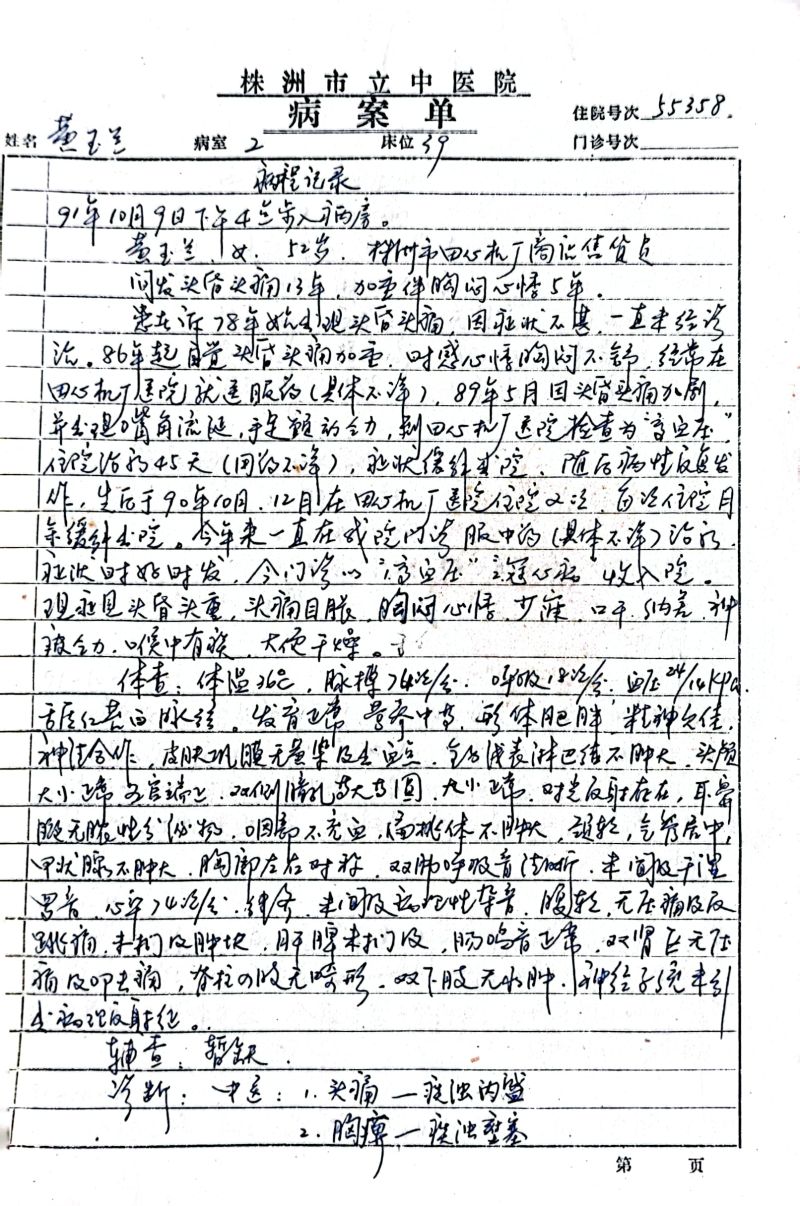 株洲市立中医院
病案单
住院号次 55358.
姓名 黄玉兰 病室 2 床位 39 门诊号次
病程记录
91年10月9日下午4点步入病房。
黄玉兰、女、52岁、株州市田心机厂商店售货员
间发头昏头痛13年，加重伴胸闷心悸5年。
患者诉78年始出现头昏头痛，因症状不甚，一直未经诊
治。86年起自觉头昏头痛加重，时感心悸胸闷不舒，经常在
田心机厂医院就医服药（具体不详），89年5月因头昏头痛加剧，
并出现口嘴角流涎，手足颤动乏力，到田心机厂医院检查为“高血压”，
住院治疗45天（用药不详），症状缓解出院。随后病情反复发
作，先后于90年10月、12月在田心机厂医院住院2次，每次住院月
余缓解出院。今年来一直在我院门诊服中药（具体不详）治疗，
症状时好时发，今门诊以“高血压”“冠心病”收入院。
现症见头昏头重，头痛目胀，胸闷心悸，少寐，口干，纳差，神
疲乏力，喉中有痰，大便干燥。
体查：体温36℃，脉搏74次/分，呼吸18次/分，血压24/14KPa，
舌质红苔白脉弦。发育正常，营养中等，形体肥胖，精神欠佳，
神清合作，皮肤巩膜无黄染及出血点，全身浅表淋巴结不肿大，头颅
大小正常，五官端正，双侧瞳孔等大等圆，大小正常，对光反射存在，耳鼻
腔无脓性分泌物，咽部不充血，扁桃体不肿大，颈软，气管居中，
甲状腺不肿大，胸部左右对称，双肺呼吸音清晰，未闻及干湿
罗音，心率74次/分，律齐，未闻及病理性杂音，腹软，无压痛及反
跳痛，未扪及肿块，肝脾未扪及，肠鸣音正常，双肾区无压
痛及叩击痛，脊柱四肢无畸形，双下肢无水肿，神经系统未引
出病理反射征。
辅查：暂缺
诊断：中医：1.头痛—痰浊内盛
2.胸痹—痰浊壅塞
第 页